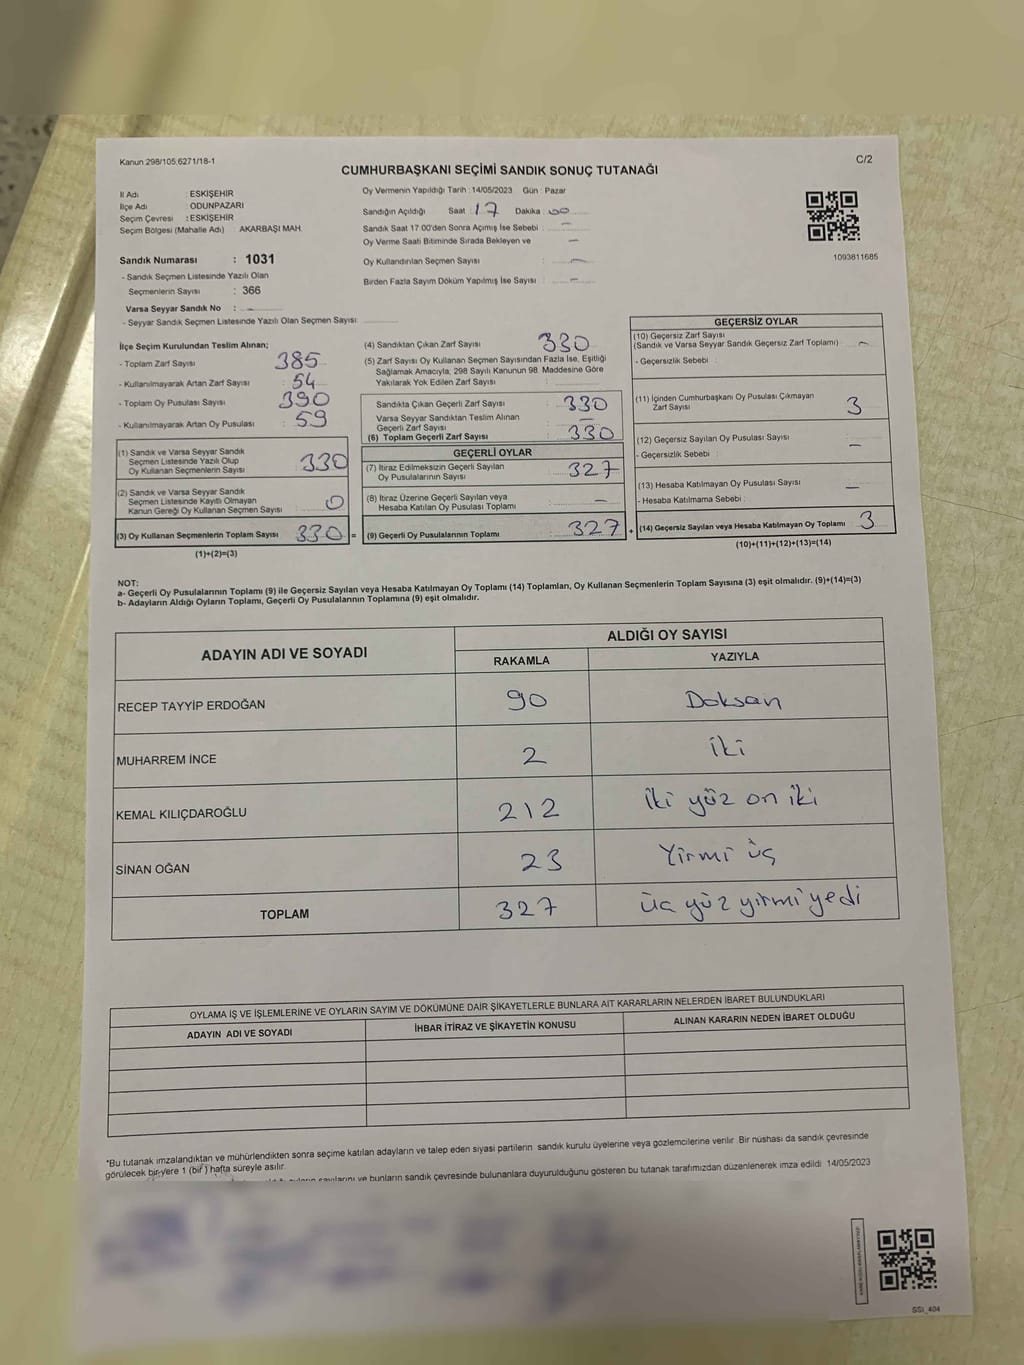 Kanun 298/105,6271/18-1
C/2
CUMHURBAŞKANI SEÇİMİ SANDIK SONUÇ TUTANAĞI
İl Adı : ESKİŞEHİR
İlçe Adı : ODUNPAZARI
Seçim Çevresi : ESKİŞEHİR
Seçim Bölgesi (Mahalle Adı) : AKARBAŞI MAH.
Oy Vermenin Yapıldığı Tarih : 14/05/2023 Gün : Pazar
Sandığın Açıldığı Saat : 17 Dakika : 00
Sandık Saat 17:00'den Sonra Açımış İse Sebebi : —
Oy Verme Saati Bitiminde Sırada Bekleyen ve —
Oy Kullandırılan Seçmen Sayısı : —
Birden Fazla Sayım Döküm Yapılmış İse Sayısı : —
1093811685
Sandık Numarası : 1031
- Sandık Seçmen Listesinde Yazılı Olan
Seçmenlerin Sayısı : 366
Varsa Seyyar Sandık No : —
- Seyyar Sandık Seçmen Listesinde Yazılı Olan Seçmen Sayısı:
İlçe Seçim Kurulundan Teslim Alınan;
- Toplam Zarf Sayısı : 385
- Kullanılmayarak Artan Zarf Sayısı : 54
- Toplam Oy Pusulası Sayısı : 390
- Kullanılmayarak Artan Oy Pusulası : 59
(1) Sandık ve Varsa Seyyar Sandık
Seçmen Listesinde Yazılı Olup
Oy Kullanan Seçmenlerin Sayısı : 330
(2) Sandık ve Varsa Seyyar Sandık
Seçmen Listesinde Kayıtlı Olmayan
Kanun Gereği Oy Kullanan Seçmen Sayısı : 0
(3) Oy Kullanan Seçmenlerin Toplam Sayısı : 330 =
(1)+(2)=(3)
(4) Sandıktan Çıkan Zarf Sayısı : 330
(5) Zarf Sayısı Oy Kullanan Seçmen Sayısından Fazla İse, Eşitliği
Sağlamak Amacıyla, 298 Sayılı Kanunun 98. Maddesine Göre
Yakılarak Yok Edilen Zarf Sayısı :
Sandıkta Çıkan Geçerli Zarf Sayısı : 330
Varsa Seyyar Sandıktan Teslim Alınan
Geçerli Zarf Sayısı : —
(6) Toplam Geçerli Zarf Sayısı : 330
GEÇERLİ OYLAR
(7) İtiraz Edilmeksizin Geçerli Sayılan
Oy Pusulalarının Sayısı : 327
(8) İtiraz Üzerine Geçerli Sayılan veya
Hesaba Katılan Oy Pusulası Toplamı : —
(9) Geçerli Oy Pusulalarının Toplamı : 327 +
GEÇERSİZ OYLAR
(10) Geçersiz Zarf Sayısı
(Sandık ve Varsa Seyyar Sandık Geçersiz Zarf Toplamı) : —
- Geçersizlik Sebebi :
(11) İçinden Cumhurbaşkanı Oy Pusulası Çıkmayan
Zarf Sayısı : 3
(12) Geçersiz Sayılan Oy Pusulası Sayısı : —
- Geçersizlik Sebebi :
(13) Hesaba Katılmayan Oy Pusulası Sayısı : —
- Hesaba Katılmama Sebebi :
(14) Geçersiz Sayılan veya Hesaba Katılmayan Oy Toplamı : 3
(10)+(11)+(12)+(13)=(14)
NOT:
a- Geçerli Oy Pusulalarının Toplamı (9) ile Geçersiz Sayılan veya Hesaba Katılmayan Oy Toplamı (14) Toplamları, Oy Kullanan Seçmenlerin Toplam Sayısına (3) eşit olmalıdır. (9)+(14)=(3)
b- Adayların Aldığı Oyların Toplamı, Geçerli Oy Pusulalarının Toplamına (9) eşit olmalıdır.
ADAYIN ADI VE SOYADI ALDIĞI OY SAYISI
RAKAMLA YAZIYLA
RECEP TAYYİP ERDOĞAN 90 Doksan
MUHARREM İNCE 2 iki
KEMAL KILIÇDAROĞLU 212 iki yüz on iki
SİNAN OĞAN 23 Yirmi üç
TOPLAM 327 üç yüz yirmi yedi
OYLAMA İŞ VE İŞLEMLERİNE VE OYLARIN SAYIM VE DÖKÜMÜNE DAİR ŞİKAYETLERLE BUNLARA AİT KARARLARIN NELERDEN İBARET BULUNDUKLARI
ADAYIN ADI VE SOYADI İHBAR İTİRAZ VE ŞİKAYETİN KONUSU ALINAN KARARIN NEDEN İBARET OLDUĞU
*Bu tutanak imzalandıktan ve mühürlendikten sonra seçime katılan adayların ve talep eden siyasi partilerin sandık kurulu üyelerine veya gözlemcilerine verilir. Bir nüshası da sandık çevresinde
görülecek bir yere 1 (bir) hafta süreyle asılır.
ve bunların sandık çevresinde bulunanlara duyurulduğunu gösteren bu tutanak tarafımızdan düzenlenerek imza edildi. 14/05/2023
SSI_404